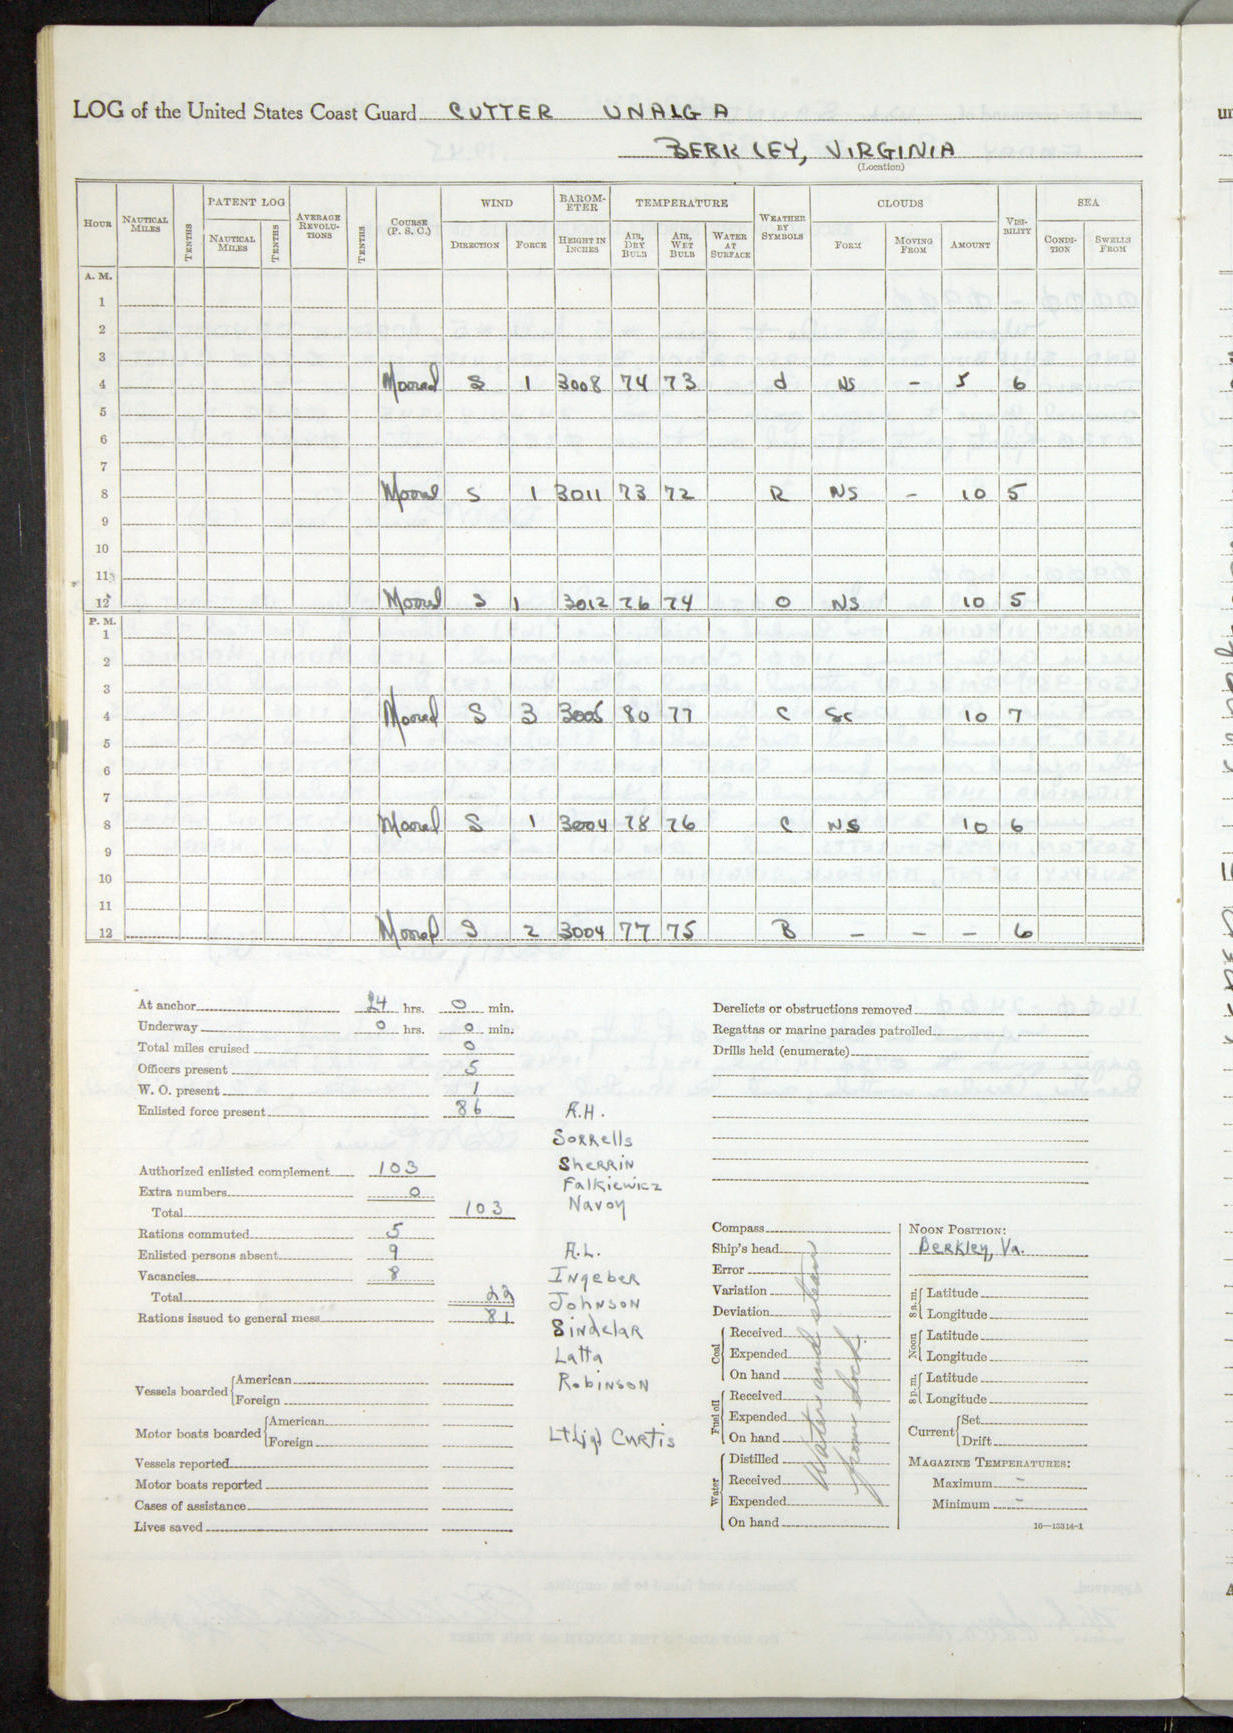 LOG of the United States Coast Guard CUTTER UNALGA
BERKLEY, VIRGINIA
(Location)
HOUR NAUTICAL MILES TENTHS PATENT LOG NAUTICAL MILES TENTHS AVERAGE REVOLU-TIONS TENTHS COURSE (P. S. C.) WIND DIRECTION FORCE BAROM-ETER HEIGHT IN INCHES TEMPERATURE AIR, DRY BULB AIR, WET BULB WATER AT SURFACE WEATHER BY SYMBOLS CLOUDS FORM MOVING FROM AMOUNT VISI-BILITY SEA CONDI-TION SWELLS FROM
A. M.
1
2
3
4 Moored S 1 3008 74 73 d NS - 5 6
5
6
7
8 Moored S 1 3011 73 72 R NS - 10 5
9
10
11
12 Moored S 1 3012 76 74 O NS 10 5
P. M.
1
2
3
4 Moored S 3 3005 80 77 C SC 10 7
5
6
7
8 Moored S 1 3004 78 76 C NS 10 6
9
10
11
12 Moored S 2 3004 77 75 B - - - 6
At anchor 24 hrs. 0 min.
Underway 0 hrs. 0 min.
Total miles cruised 0
Officers present 5
W. O. present 1
Enlisted force present 86
Authorized enlisted complement 103
Extra numbers 0
Total 103
Rations commuted 5
Enlisted persons absent 9
Vacancies 8
Total 22
Rations issued to general mess 81
Vessels boarded American
Foreign
Motor boats boarded American
Foreign
Vessels reported
Motor boats reported
Cases of assistance
Lives saved
R.H.
Sorrells
Sherrin
Falkiewicz
Navoy
A.L.
Ingeber
Johnson
Sindelar
Latta
Robinson
Lt(jg) Curtis
Derelicts or obstructions removed
Regattas or marine parades patrolled
Drills held (enumerate)
Compass
Ship's head
Error
Variation
Deviation
Coal Received
Expended
On hand
Fuel oil Received
Expended
On hand
Water Distilled
Received
Expended
On hand
Water and steam
from dock.
NOON POSITION:
Berkley, Va.
8 a. m. Latitude
Longitude
Noon Latitude
Longitude
8 p. m. Latitude
Longitude
Current Set
Drift
MAGAZINE TEMPERATURES:
Maximum -
Minimum -
16—13314-1